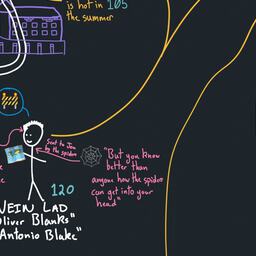 is hot in 105
the summer
Sent to Jon
by the spider
"But you know
better than
anyone how the spider
can get into your
head"
120
VEIN LAD
Oliver Blanks"
Antonio Blake"